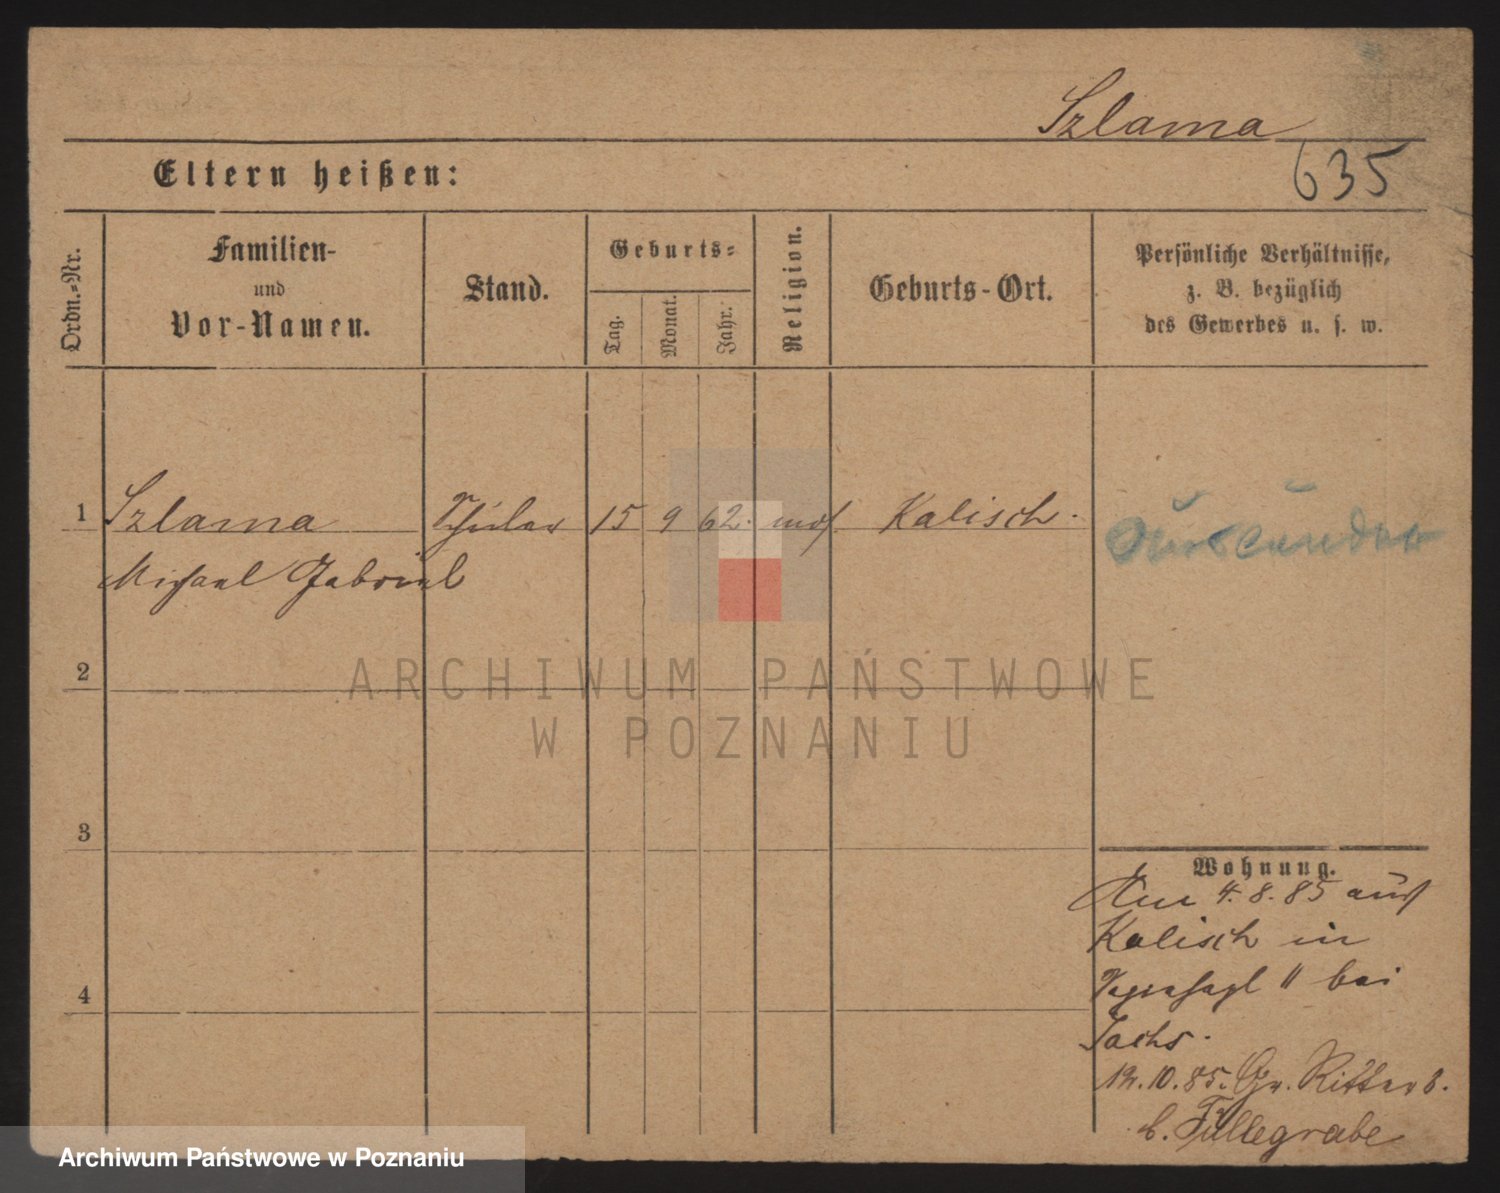 Szlama
635
Eltern heißen:
Ordn.-Nr.
Familien-
und
Vor-Namen.
Stand.
Geburts-
Tag.
Monat.
Jahr.
Religion.
Geburts-Ort.
Persönliche Verhältnisse,
z. B. bezüglich
des Gewerbes u. s. w.
1 Szlama Schüler 15 9 62. mos. Kalisch.
Michael Gabriel
Ausländer
2
3
4
Wohnung.
4. 8. 85 aus
Kalisch in
11 bei
Sachs.
10. 85. Gr. Ritter
b. Füllegrabe
ARCHIWUM PAŃSTWOWE
W POZNANIU
Archiwum Państwowe w Poznaniu